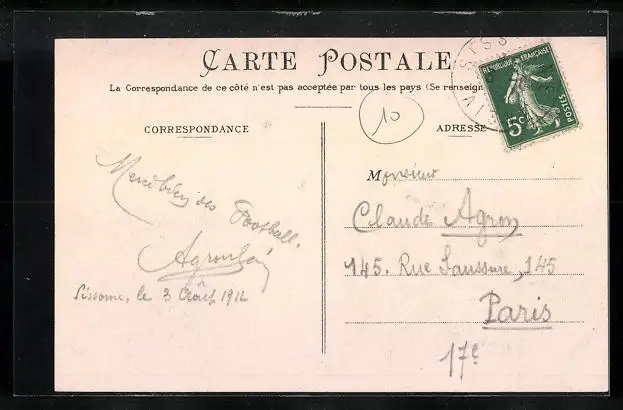 CARTE POSTALE
La Correspondance de ce côté n'est pas acceptée par tous les pays (Se renseign
10
CORRESPONDANCE
ADRESSE
RÉPUBLIQUE FRANÇAISE
POSTES
5c
Football.
Sissonne, le 3 Août 1912
Monsieur
Claude Agron
145. Rue Saussure, 145
Paris
17e